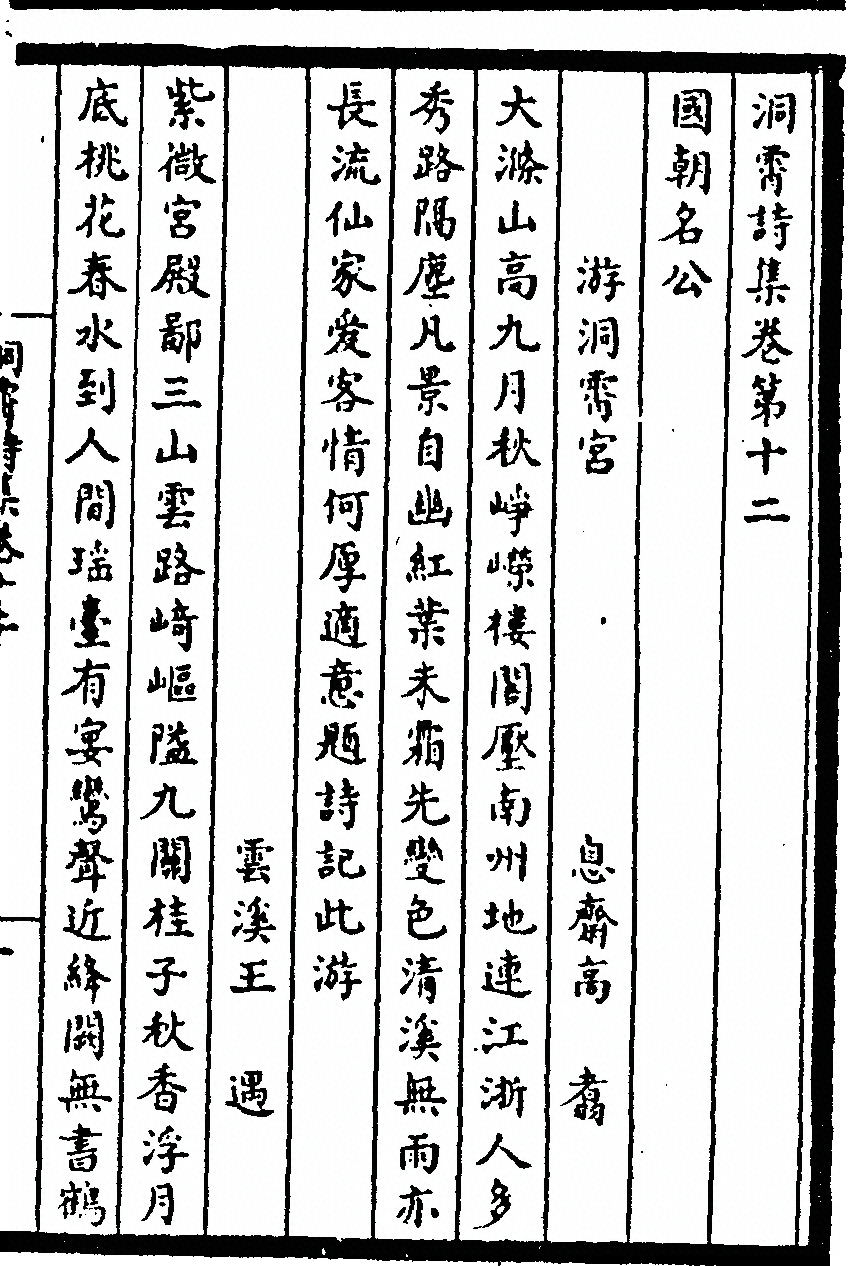 洞霄詩集卷第十二
國朝名公
游洞霄宮 息齋高 翥
大滌山高九月秋崢嶸樓閣壓南州地連江浙人多
秀路隔塵凡景自幽紅葉未霜先變色清溪無雨亦
長流仙家愛客情何厚適意題詩記此游
雲溪王 遇
紫微宮殿鄙三山雲路崎嶇隘九關桂子秋香浮月
底桃花春水到人間瑤臺有宴鸞聲近絳闕無書鶴
洞霄詩集卷十二
一